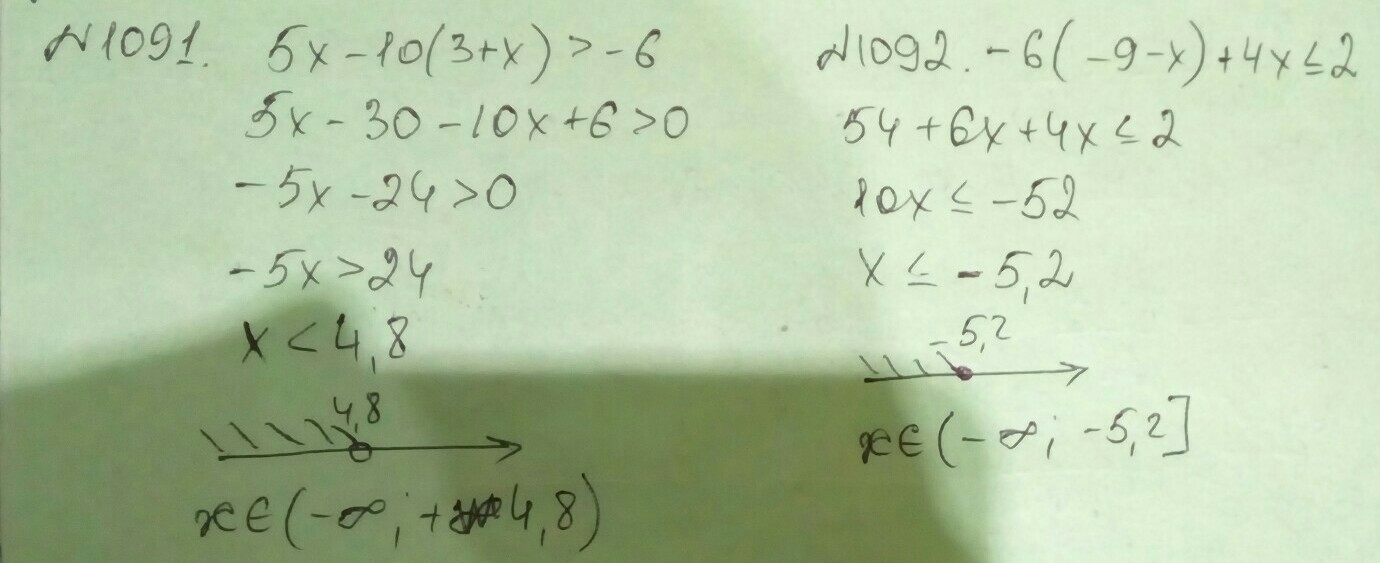 №1091. 5x-10(3+x)>-6
5x-30-10x+6>0
-5x-24>0
-5x>24
x<4,8
4,8
x∈(-∞; +4,8)
№1092. -6(-9-x)+4x≤2
54+6x+4x≤2
10x≤-52
x≤-5,2
-5,2
x∈(-∞; -5,2]